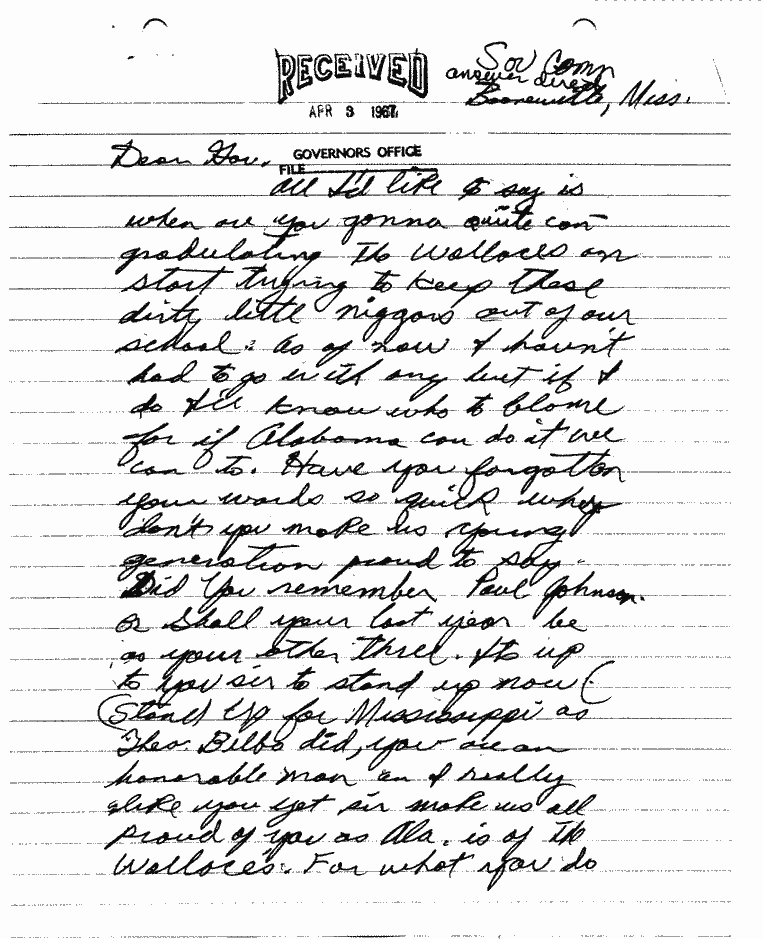 Sov Comm
RECEIVED answer direct
APR 3 1967 Booneville, Miss.
Dear Gov. GOVERNORS OFFICE
FILE
all I'd like to say is
when are you gonna quite con-
gradulating the Wallaces an
start trying to keep these
dirty little niggars out of our
school. As of now I haven't
had to go with any but if I
do I'll know who to blame
for if Alabama can do it we
can to. Have you forgotten
your words so quick why
don't you make us young
generation proud to say.
Did you remember Paul Johnson.
or shall your last year be
as your other three. Its up
to you sir to stand up now (
(Stand Up for Mississippi as
Theo. Bilbo did, you are an
honorable man an I really
like you yet sir make us all
proud of you as Ala. is of the
Wallace's. For what you do